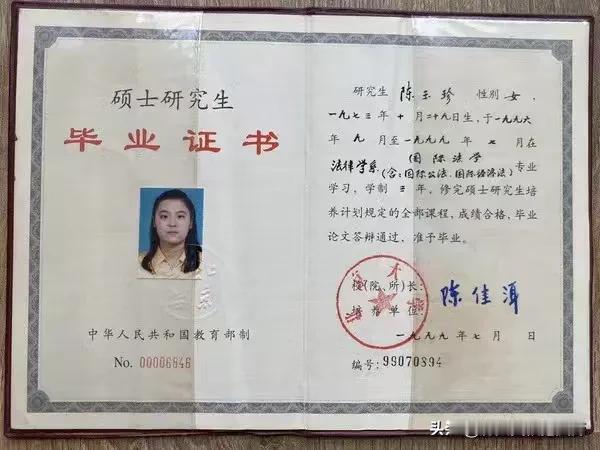 硕士研究生
毕业证书
中华人民共和国教育部制
No. 00006846
研究生 陈玉珍 性别 女,
一九七三年 十 月 二十九日生,于一九九六
年 九 月至一九九九年 七 月在
法律学系 (国际法学
(含:国际公法、国际经济法) 专业
学习,学制 三 年,修完硕士研究生培
养计划规定的全部课程,成绩合格,毕业
论文答辩通过,准予毕业。
校(院、所)长: 陈佳洱
培养单位
一九九九年七月 日
编号: 99070894
头条